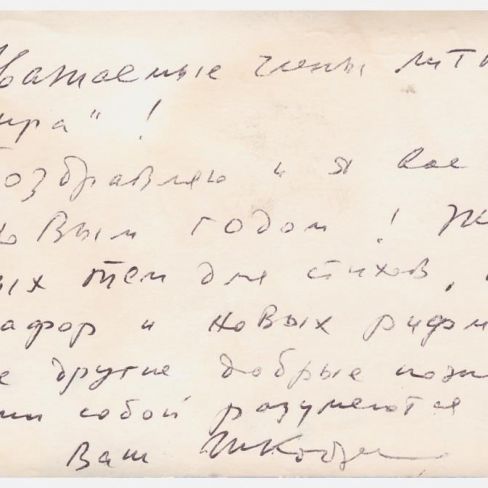 важаемые члены лит
ира" !
оздравляю и я вас
новым годом ! Ж
ых тем для стихов,
афор и новых рифм
е другие добрые пож
ми собой разумеются
Ваш